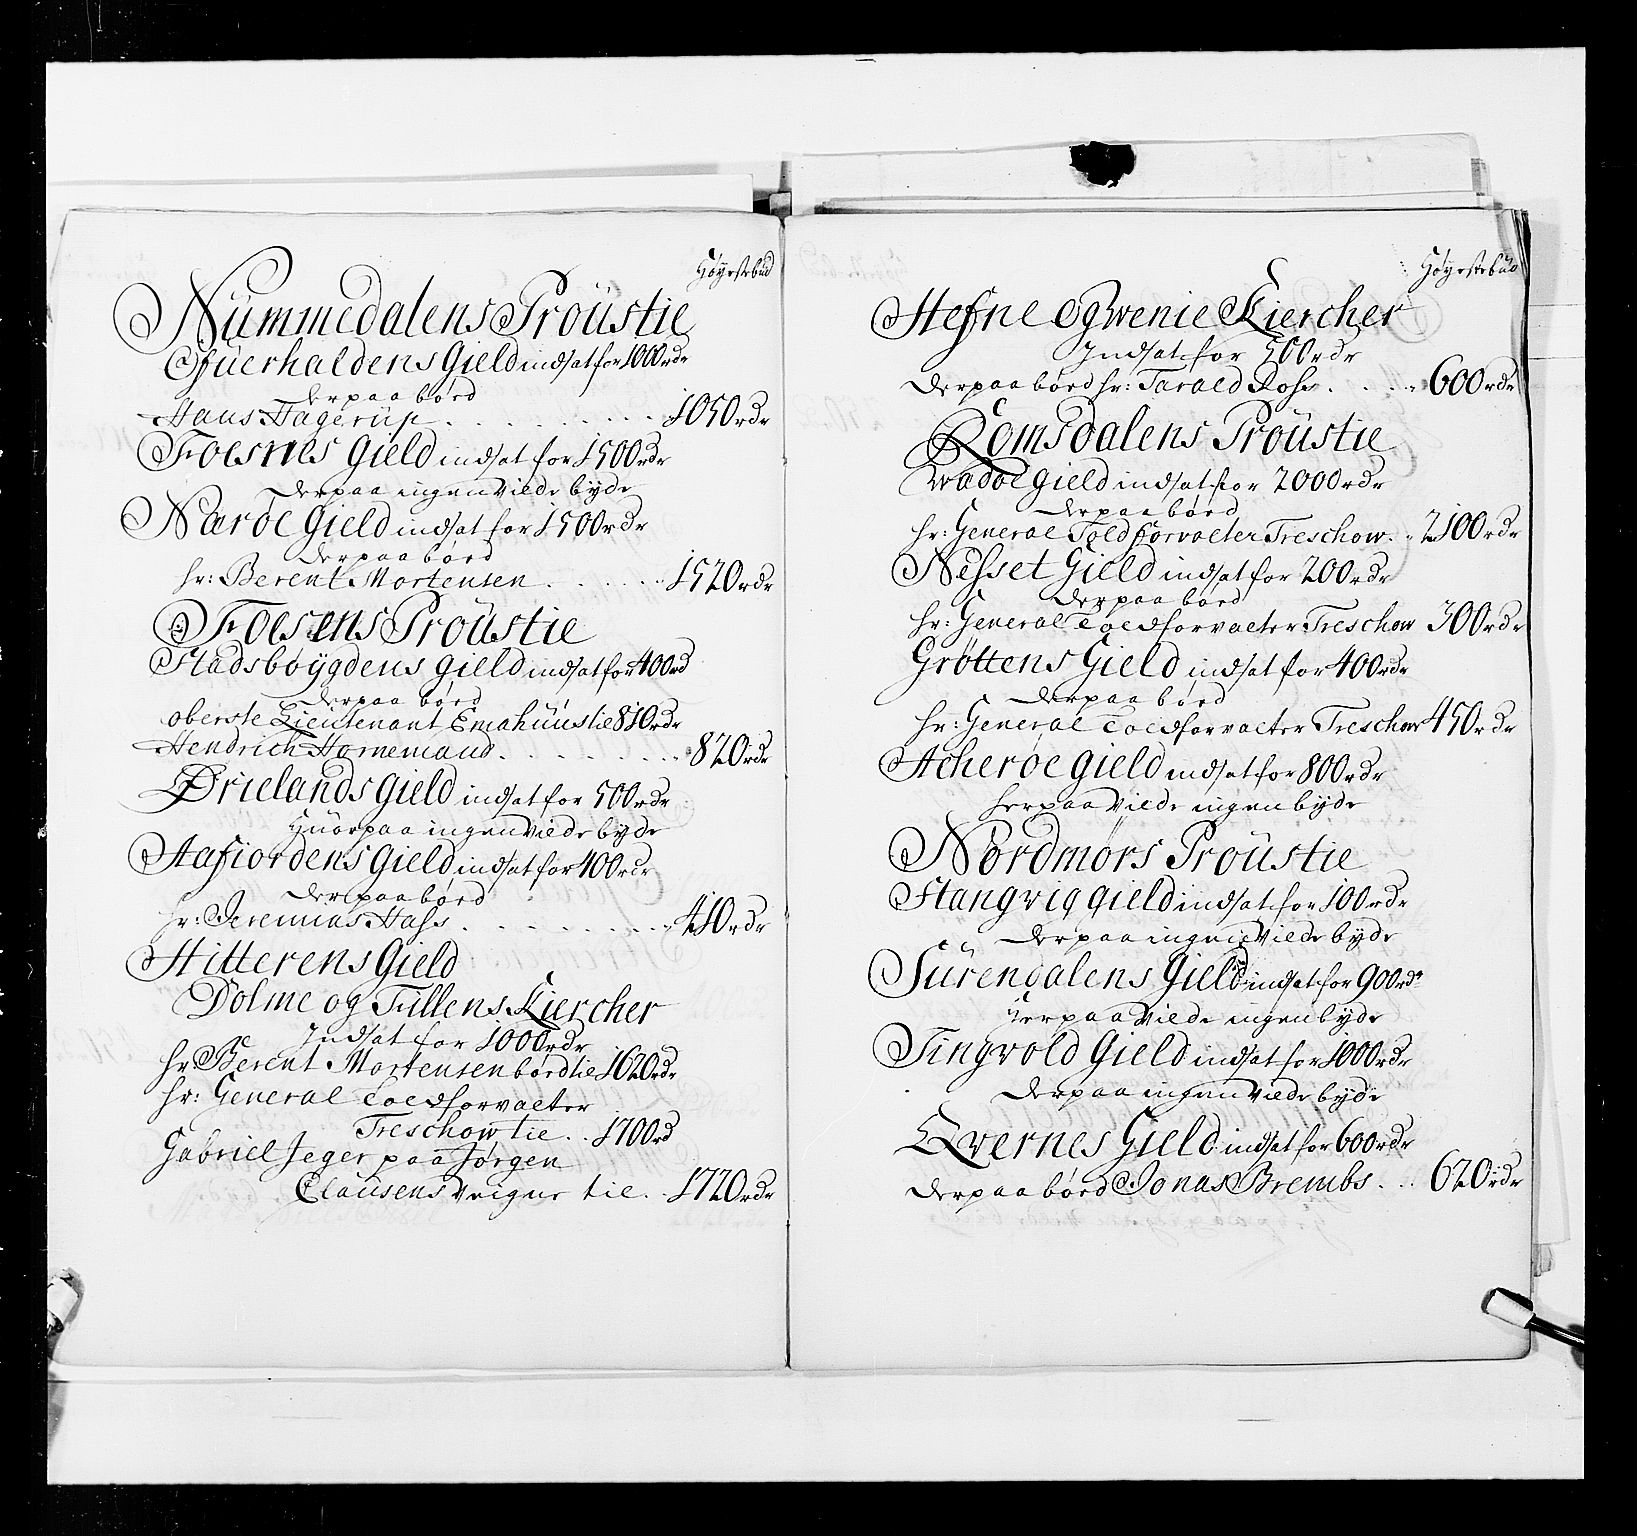 Høyestebud
Nümmedalens Proüstie
Ofüerhaldens Gield indsat for 1000 rdr
derpaa børd
Hans Hagerüp . . . . . . . 1050 rdr
Foesnes Gield indsat for 1500 rdr
derpaa ingen vilde byde
Nærøe Gield indsat for 1500 rdr
derpaa børd
hr: Berent Mortensen . . . . . . 1520 rdr
Foesens Proüstie
Stadsbøygdens gield indsat for 400 rd
derpaa børd
oberste Lieutenant Emahüüs tie 810 rdr
Hendrich Hornemand . . . . . . . 820 rdr
Ørielands Gield indsat for 500 rdr
Huorpaa ingen vilde byde
Aafiordens Gield indsat for 400 rdr
derpaa børd
hr: Jeremias Hass . . . . . . . 410 rdr
Hitterens Gield
Dolme og Fillens Kiercher
Indsat for 1000 rdr
hr Berent Mortensen børd tie 1620 rdr
hr: General Toldforvalter
Treschow tie . . 1700 rd
Gabriel Jeger paa Jørgen
Clausens Veigne til . . 1720 rdr
Høyestebud
Hefne og Wenie Kiercher
Indsat for 500 rdr
derpaa børd hr: Tarald Rohs . . . . 600 rdr
Romsdalens Proüstie
Wadøe gield indsat for 2000 rdr
derpaa børd
hr: General Toldforvalter Treschow . . 2100 rdr
Nesset Gield indsat for 200 rdr
derpaa børd
hr: General Toldforvalter Treschow 300 rdr
Grøttens Gield indsat for 400 rdr
derpaa børd
hr: General Toldforvalter Treschow 450 rdr
Acherøe gield indsat for 800 rdr
herpaa vilde ingen byde
Nordmørs Proüstie
Stangvig gield indsat for 100 rdr
derpaa ingen vilde byde
Sürendalens Gield indsat for 900 rdr
herpaa vilde ingen byde
Tingvold Gield indsat for 1000 rdr
derpaa ingen vilde byde
Qvernes Gield indsat for 600 rdr
derpaa børd Jonas Brembs . . . 620 rdr